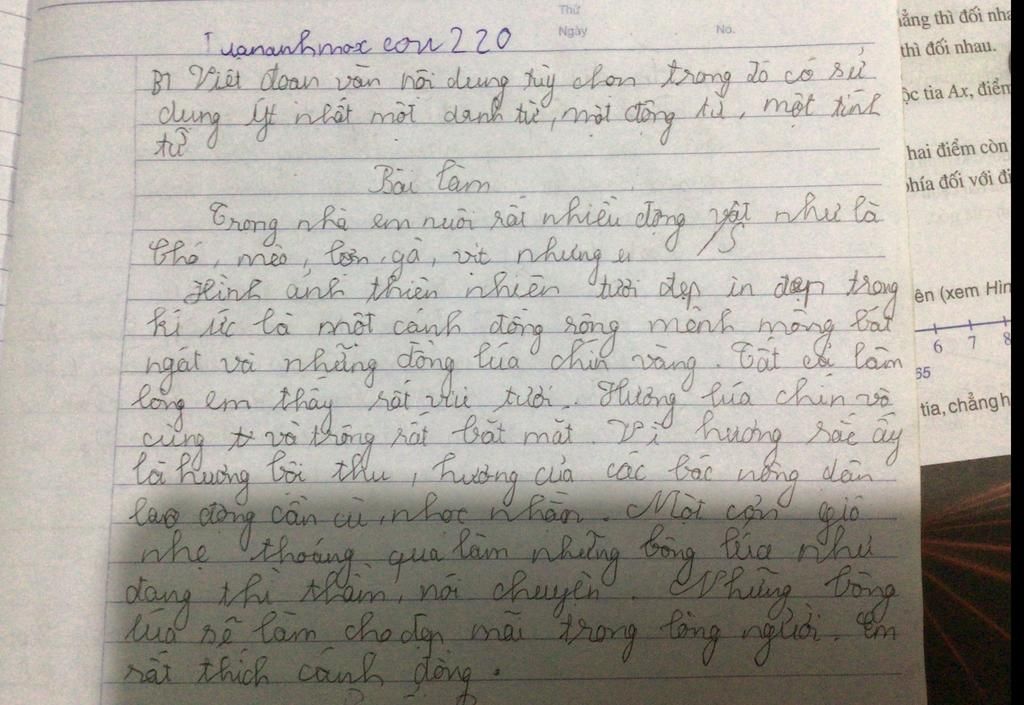 Thứ
Ngày No.
Tuananhmaxcou220
B1 Viết đoạn văn nội dung tùy chọn trong đó có sử
dụng ít nhất một danh từ, một động từ, một tính
từ
Bài làm
Trong nhà em nuôi rất nhiều động vật như là
thỏ, mèo, lợn, gà, vịt nhưng
Hình ảnh thiên nhiên tươi đẹp in đẹp trong
kí ức là một cánh đồng rộng mênh mông bát
ngát và những đồng lúa chín vàng. Tất cả làm
lòng em thấy rất vui tươi. Hương lúa chín vô
cùng và trông rất bắt mắt. Vì hương sắc ấy
là hương bội thu, hương của các bác nông dân
lao động cần cù, nhọc nhằn. Một cơn gió
nhẹ thoáng qua làm những bông lúa như
đang thì thầm, nói chuyện. Những bông
lúa sẽ làm cho đẹp mãi trong lòng người. Em
rất thích cánh đồng.
ẳng thì đối nha
thì đối nhau.
ộc tia Ax, điểm
hai điểm còn
phía đối với đi
ên (xem Hìn
6 7 8
65
tia, chẳng h